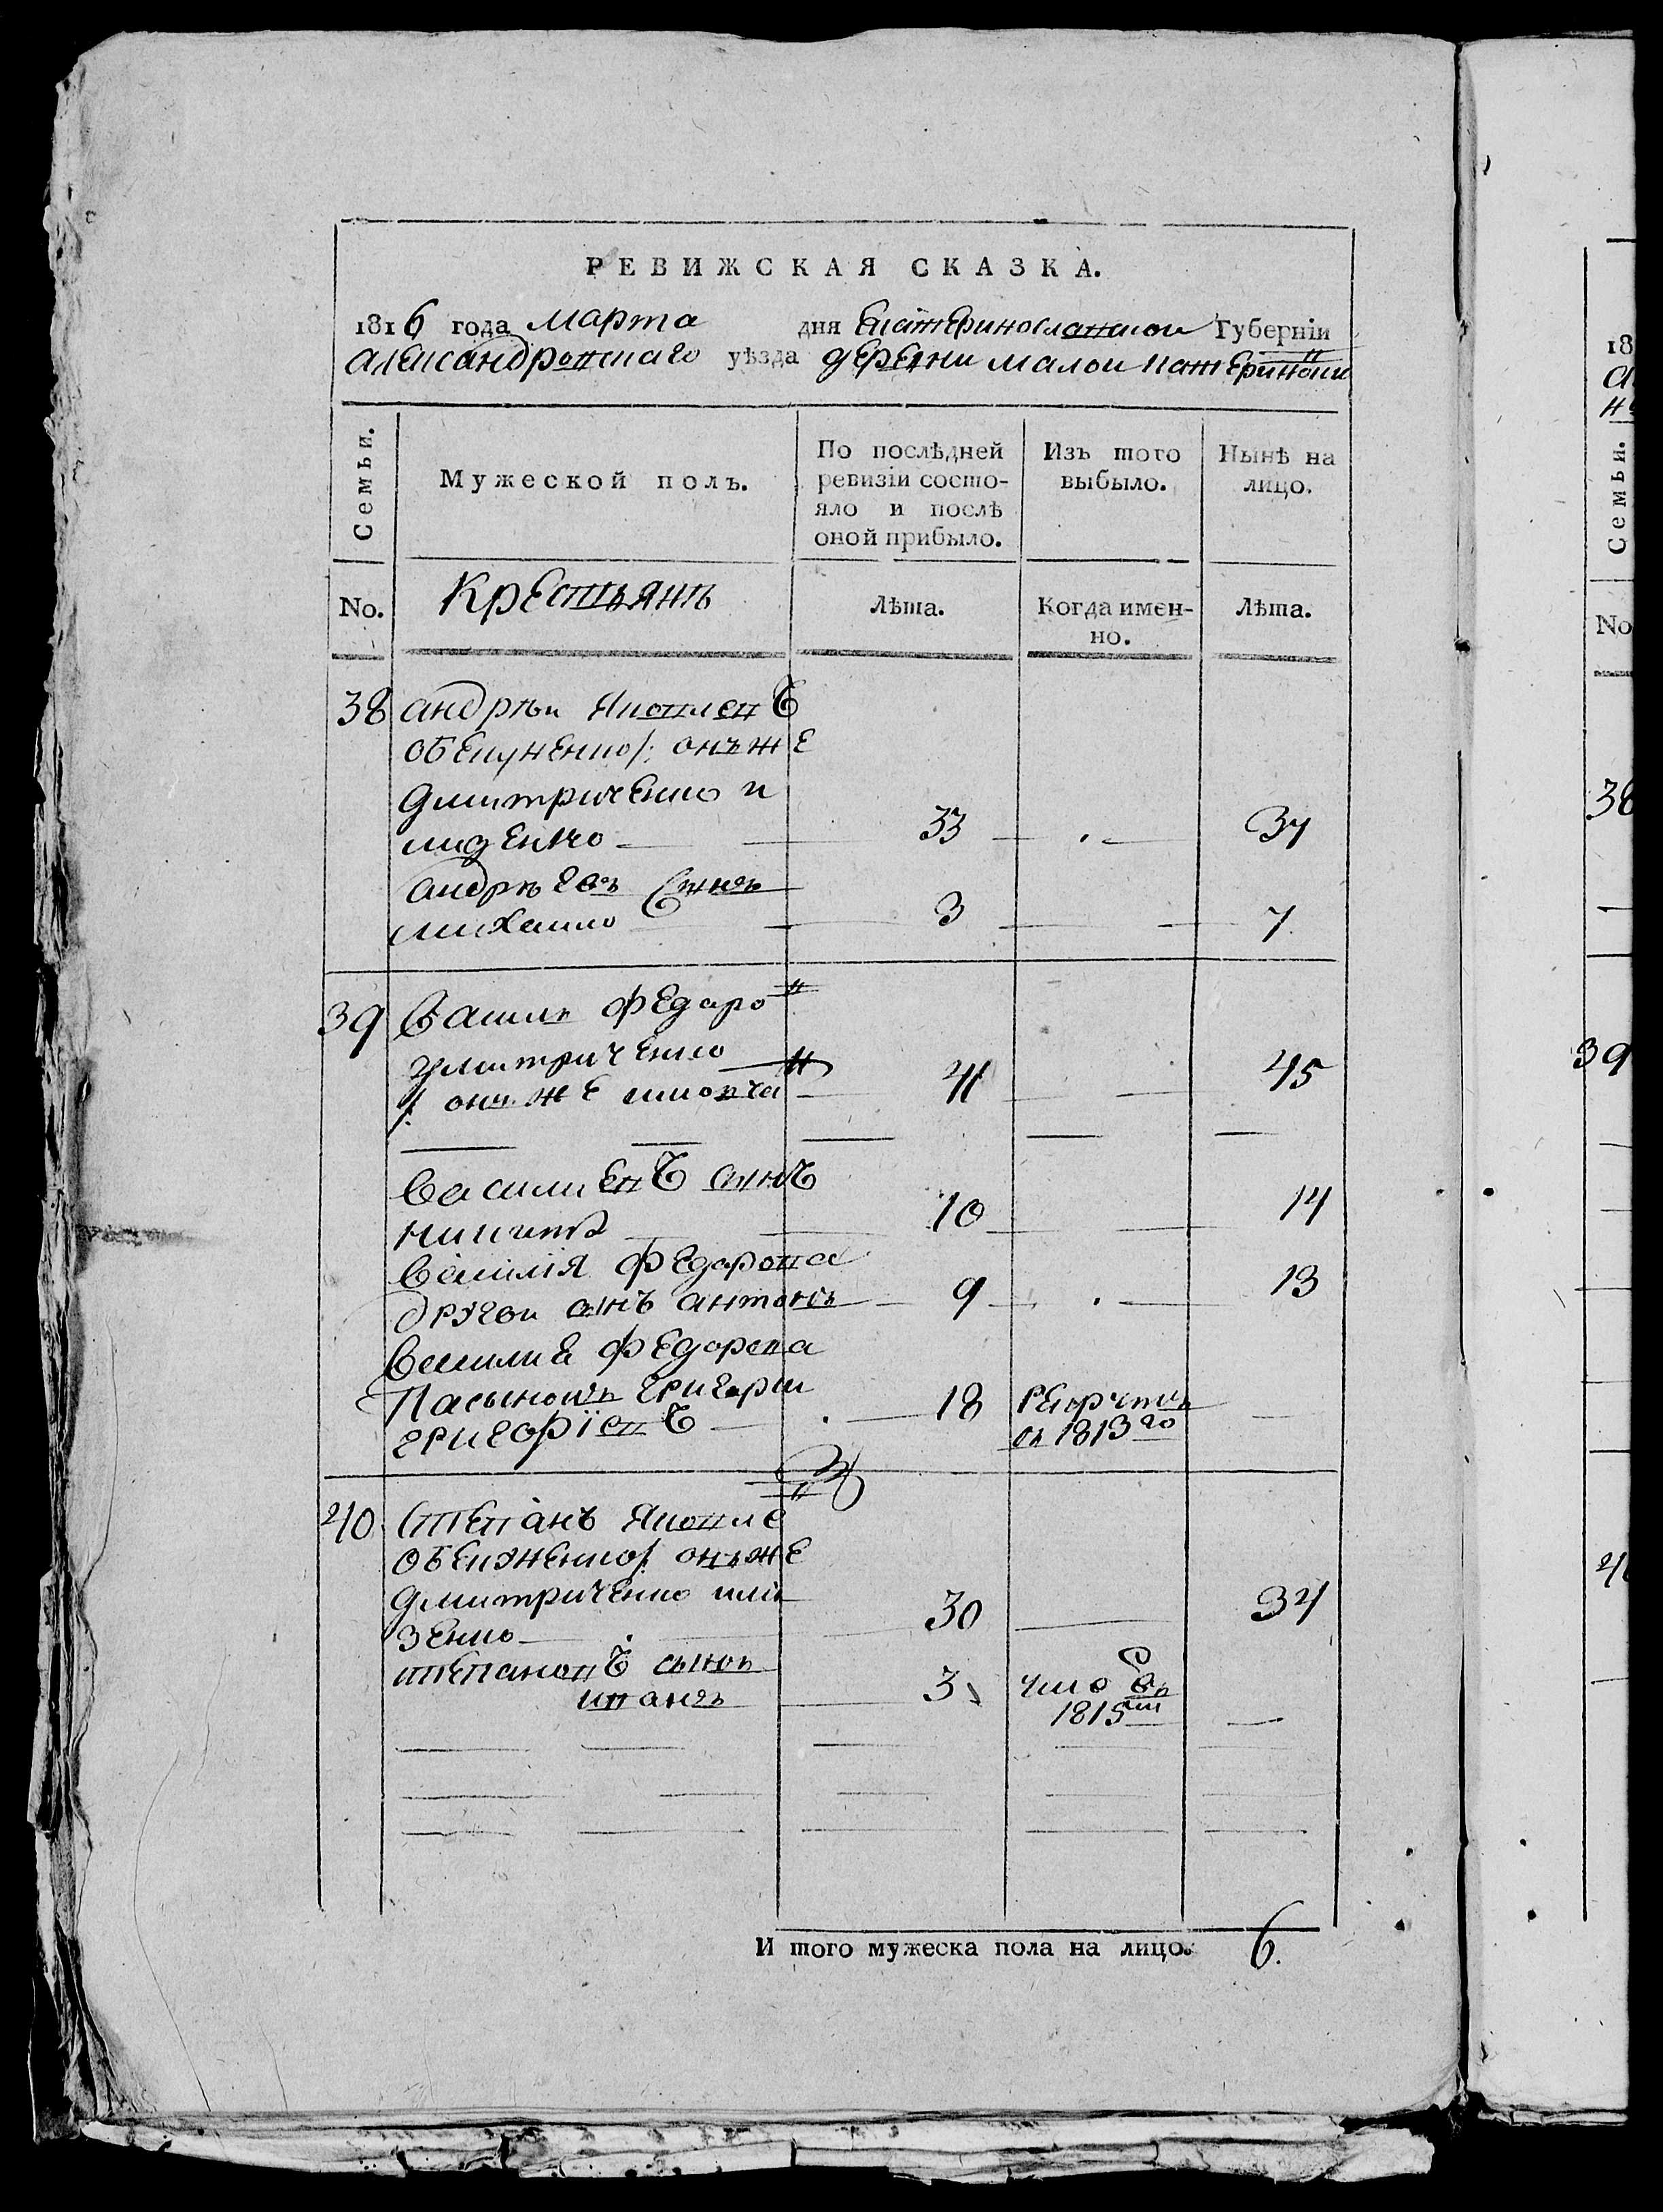 РЕВИЖСКАЯ СКАЗКА.
1816 года марта дня Екатеринославской Губерніи
александровскаго уѣзда деревни малои катериновки
Семьи.
Мужеской полъ.
По послѣдней
ревизіи состо-
яло и послѣ
оной прибыло.
Изъ того
выбыло.
Нынѣ на
лицо.
No.
Крестьянъ
Лѣта.
Когда имен-
но.
Лѣта.
38 андрѣи Яковлевъ
онъ же
дмитриченко и
33 37
андрѣевъ сынъ
михаило 3 7
39 Василь федаровъ
дмитриченко
онъ же 41 45
василиевъ сынъ
никита 10 14
василія федорова
другои сынъ антонъ 9 13
василия федорова
Пасынокъ григории
григоріевъ 18 рекрутъ
въ 1813го
40 степанъ Яковле
онъже
дмитриченко или
зенко 30 34
степановъ сынъ
иванъ 3 въ
1815м
И того мужеска пола на лицо. 6.
18
Семьи.
No
38
39